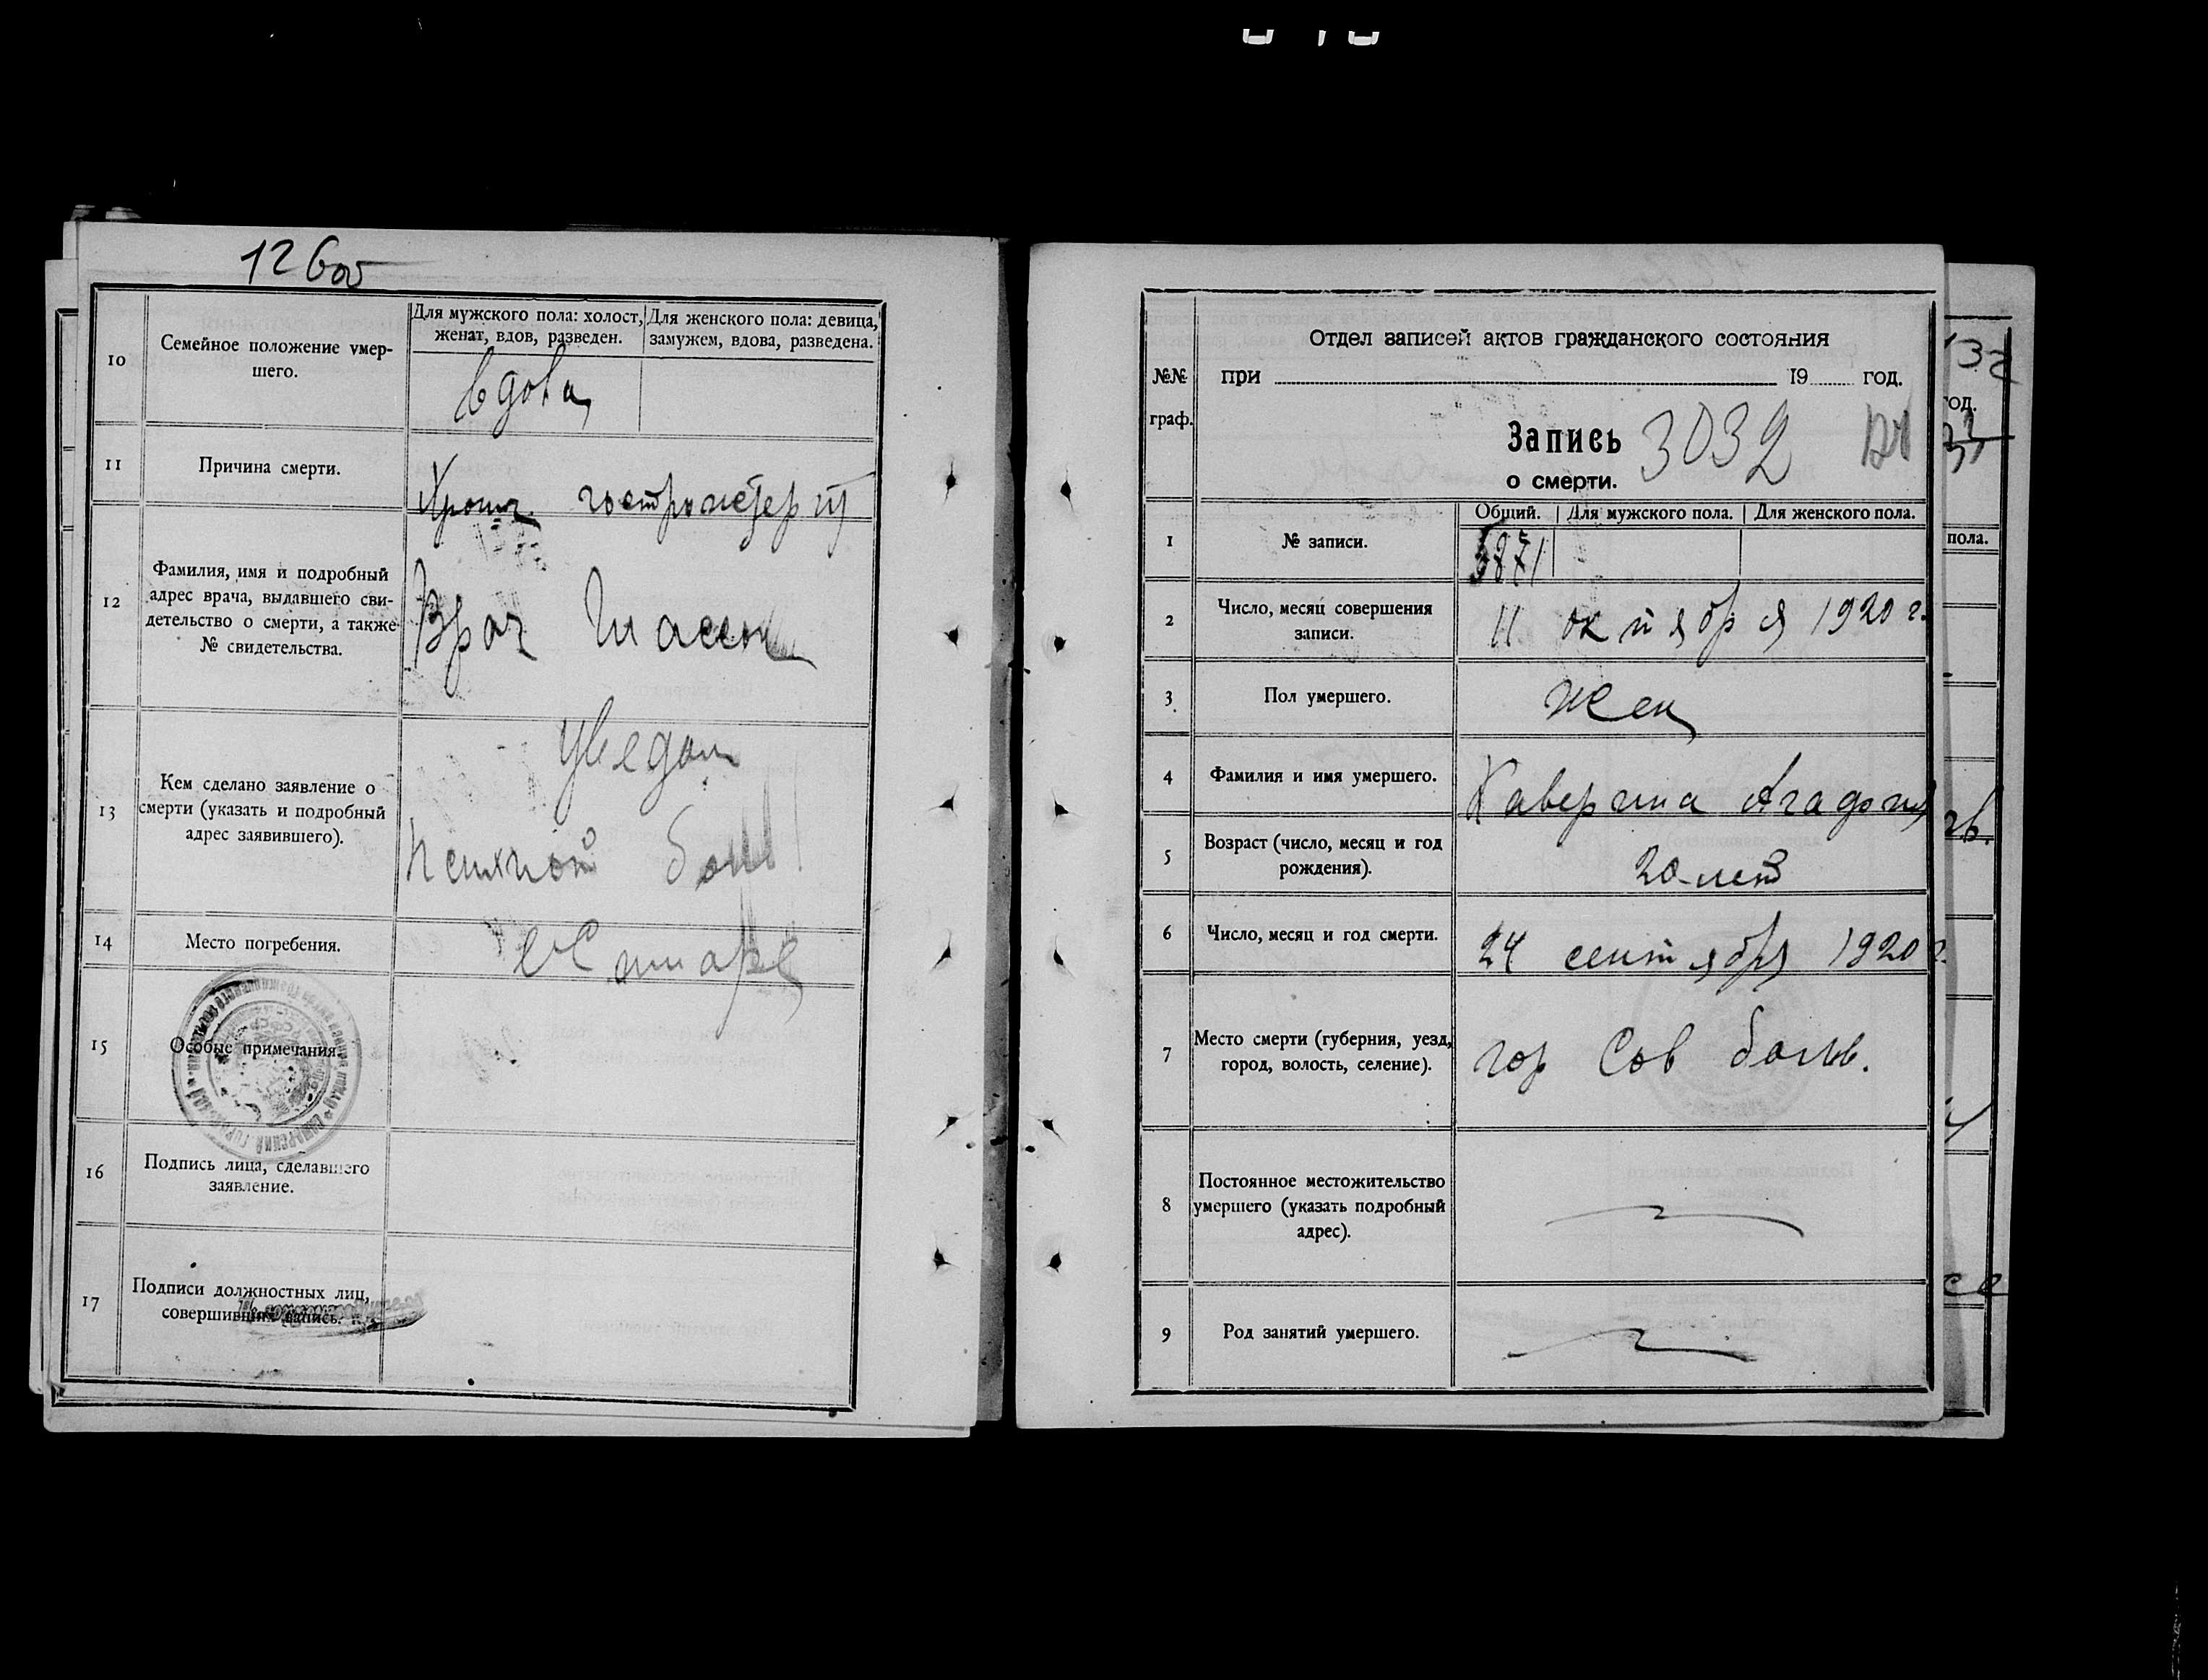 12 боб
10
Семейное положение умер-
шего.
Для мужского пола: холост,
женат, вдов, разведен.
Для женского пола: девица,
замужем, вдова, разведена.
вдова
11
Причина смерти.
Хронич
12
Фамилия, имя и подробный
адрес врача, выдавшего сви-
детельство о смерти, а также
№ свидетельства.
Врач
13
Кем сделано заявление о
смерти (указать и подробный
адрес заявившего).
уведом
14
Место погребения.
15
Особые примечания.
16
Подпись лица, сделавшего
заявление.
17
Подписи должностных лиц,
совершивших запись.
Отдел записей актов гражданского состояния
№№
граф.
при 19 год.
Запись
о смерти.
3032
Общий. Для мужского пола. Для женского пола.
1
№ записи.
5871
2
Число, месяц совершения
записи.
11 октября 1920 г.
3
Пол умершего.
жен
4
Фамилия и имя умершего.
Каверина Агафия
5
Возраст (число, месяц и год
рождения).
20 лет
6
Число, месяц и год смерти.
24 сентября 1920 г.
7
Место смерти (губерния, уезд,
город, волость, селение).
гор Сов больн.
8
Постоянное местожительство
умершего (указать подробный
адрес).
9
Род занятий умершего.
год.
пола.